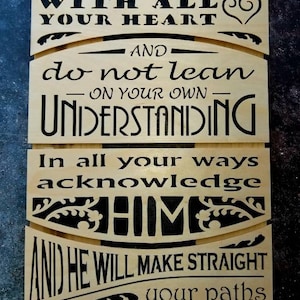 WITH ALL
YOUR HEART
AND
do not lean
ON YOUR OWN
UNDERSTANDING
In all your ways
acknowledge
HIM
AND HE WILL MAKE STRAIGHT
your paths